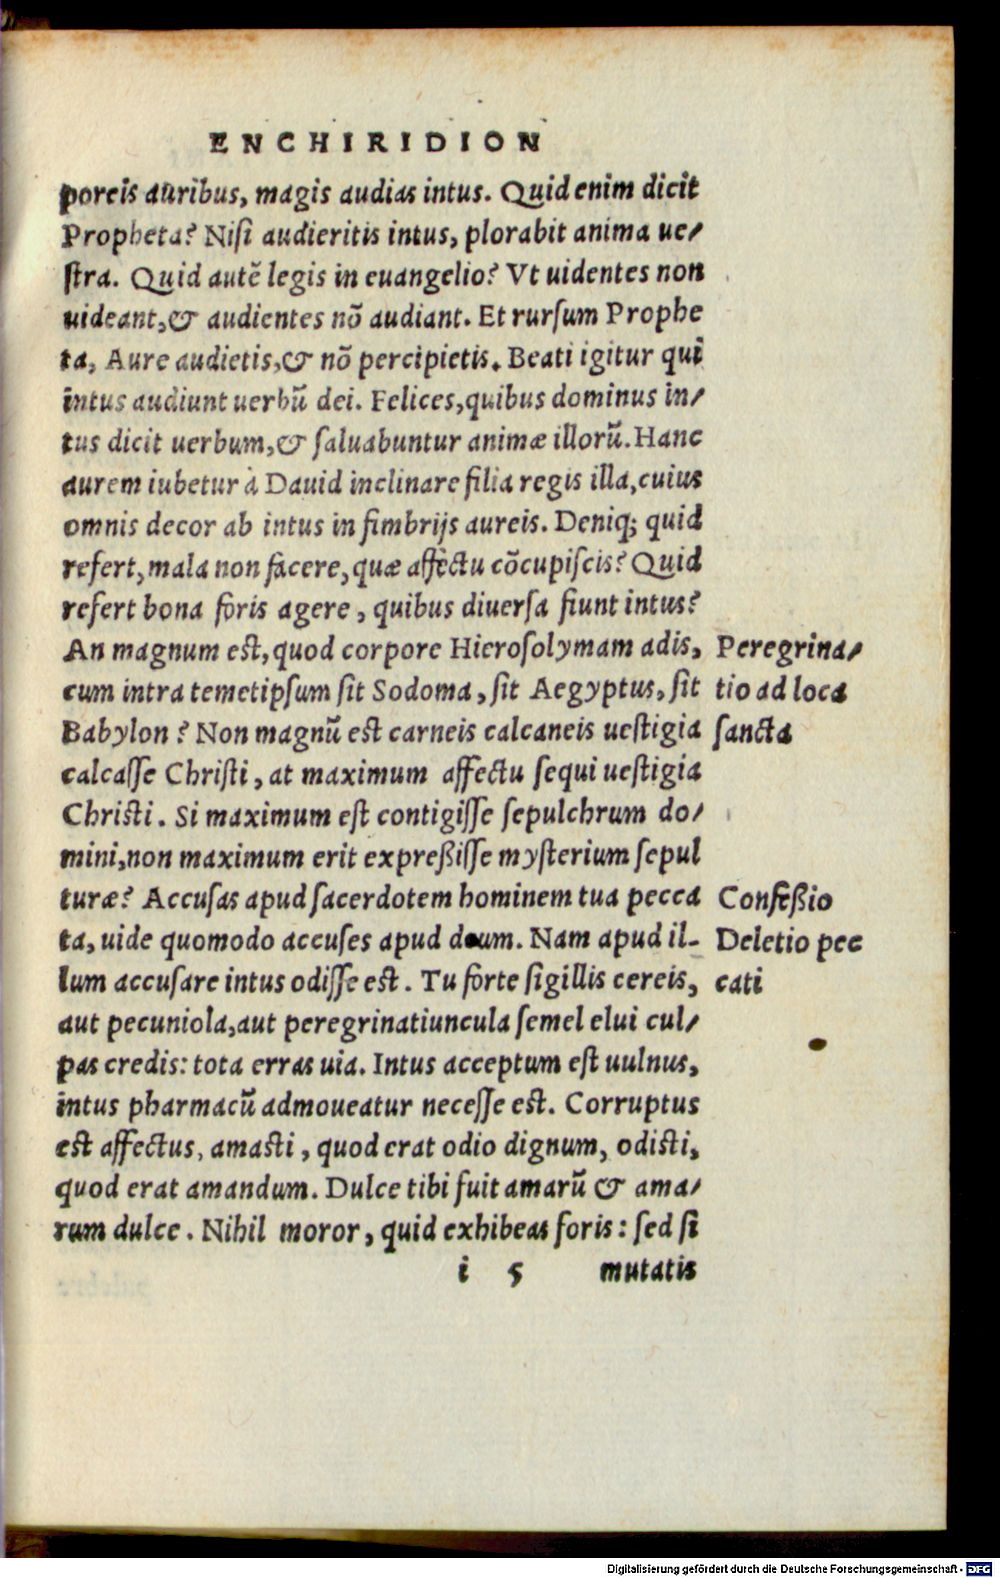 ENCHIRIDION
poreis auribus, magis audias intus. Quid enim dicit
Propheta? Nisi audieritis intus, plorabit anima ue/
stra. Quid autē legis in euangelio? Vt uidentes non
uideant, & audientes nō audiant. Et rursum Prophe
ta, Aure audietis, & nō percipietis. Beati igitur qui
intus audiunt uerbū dei. Felices, quibus dominus in/
tus dicit uerbum, & saluabuntur animæ illorū. Hanc
aurem iubetur à Dauid inclinare filia regis illa, cuius
omnis decor ab intus in fimbrijs aureis. Deniq; quid
refert, mala non facere, quæ affectu cōcupiscis? Quid
refert bona foris agere, quibus diuersa fiunt intus?
An magnum est, quod corpore Hierosolymam adis,
cum intra temetipsum sit Sodoma, sit Aegyptus, sit
Babylon? Non magnū est carneis calcaneis uestigia
calcasse Christi, at maximum affectu sequi uestigia
Christi. Si maximum est contigisse sepulchrum do/
mini, non maximum erit expreßisse mysterium sepul
turæ? Accusas apud sacerdotem hominem tua pecca
ta, uide quomodo accuses apud deum. Nam apud il-
lum accusare intus odisse est. Tu forte sigillis cereis,
aut pecuniola, aut peregrinatiuncula semel elui cul/
pas credis: tota erras uia. Intus acceptum est uulnus,
intus pharmacū admoueatur necesse est. Corruptus
est affectus, amasti, quod erat odio dignum, odisti,
quod erat amandum. Dulce tibi fuit amarū & ama/
rum dulce. Nihil moror, quid exhibeas foris: sed si
i 5 mutatis
Peregrina/
tio ad loca
sancta
Confeßio
Deletio pec
cati
Digitalisierung gefördert durch die Deutsche Forschungsgemeinschaft - DFG